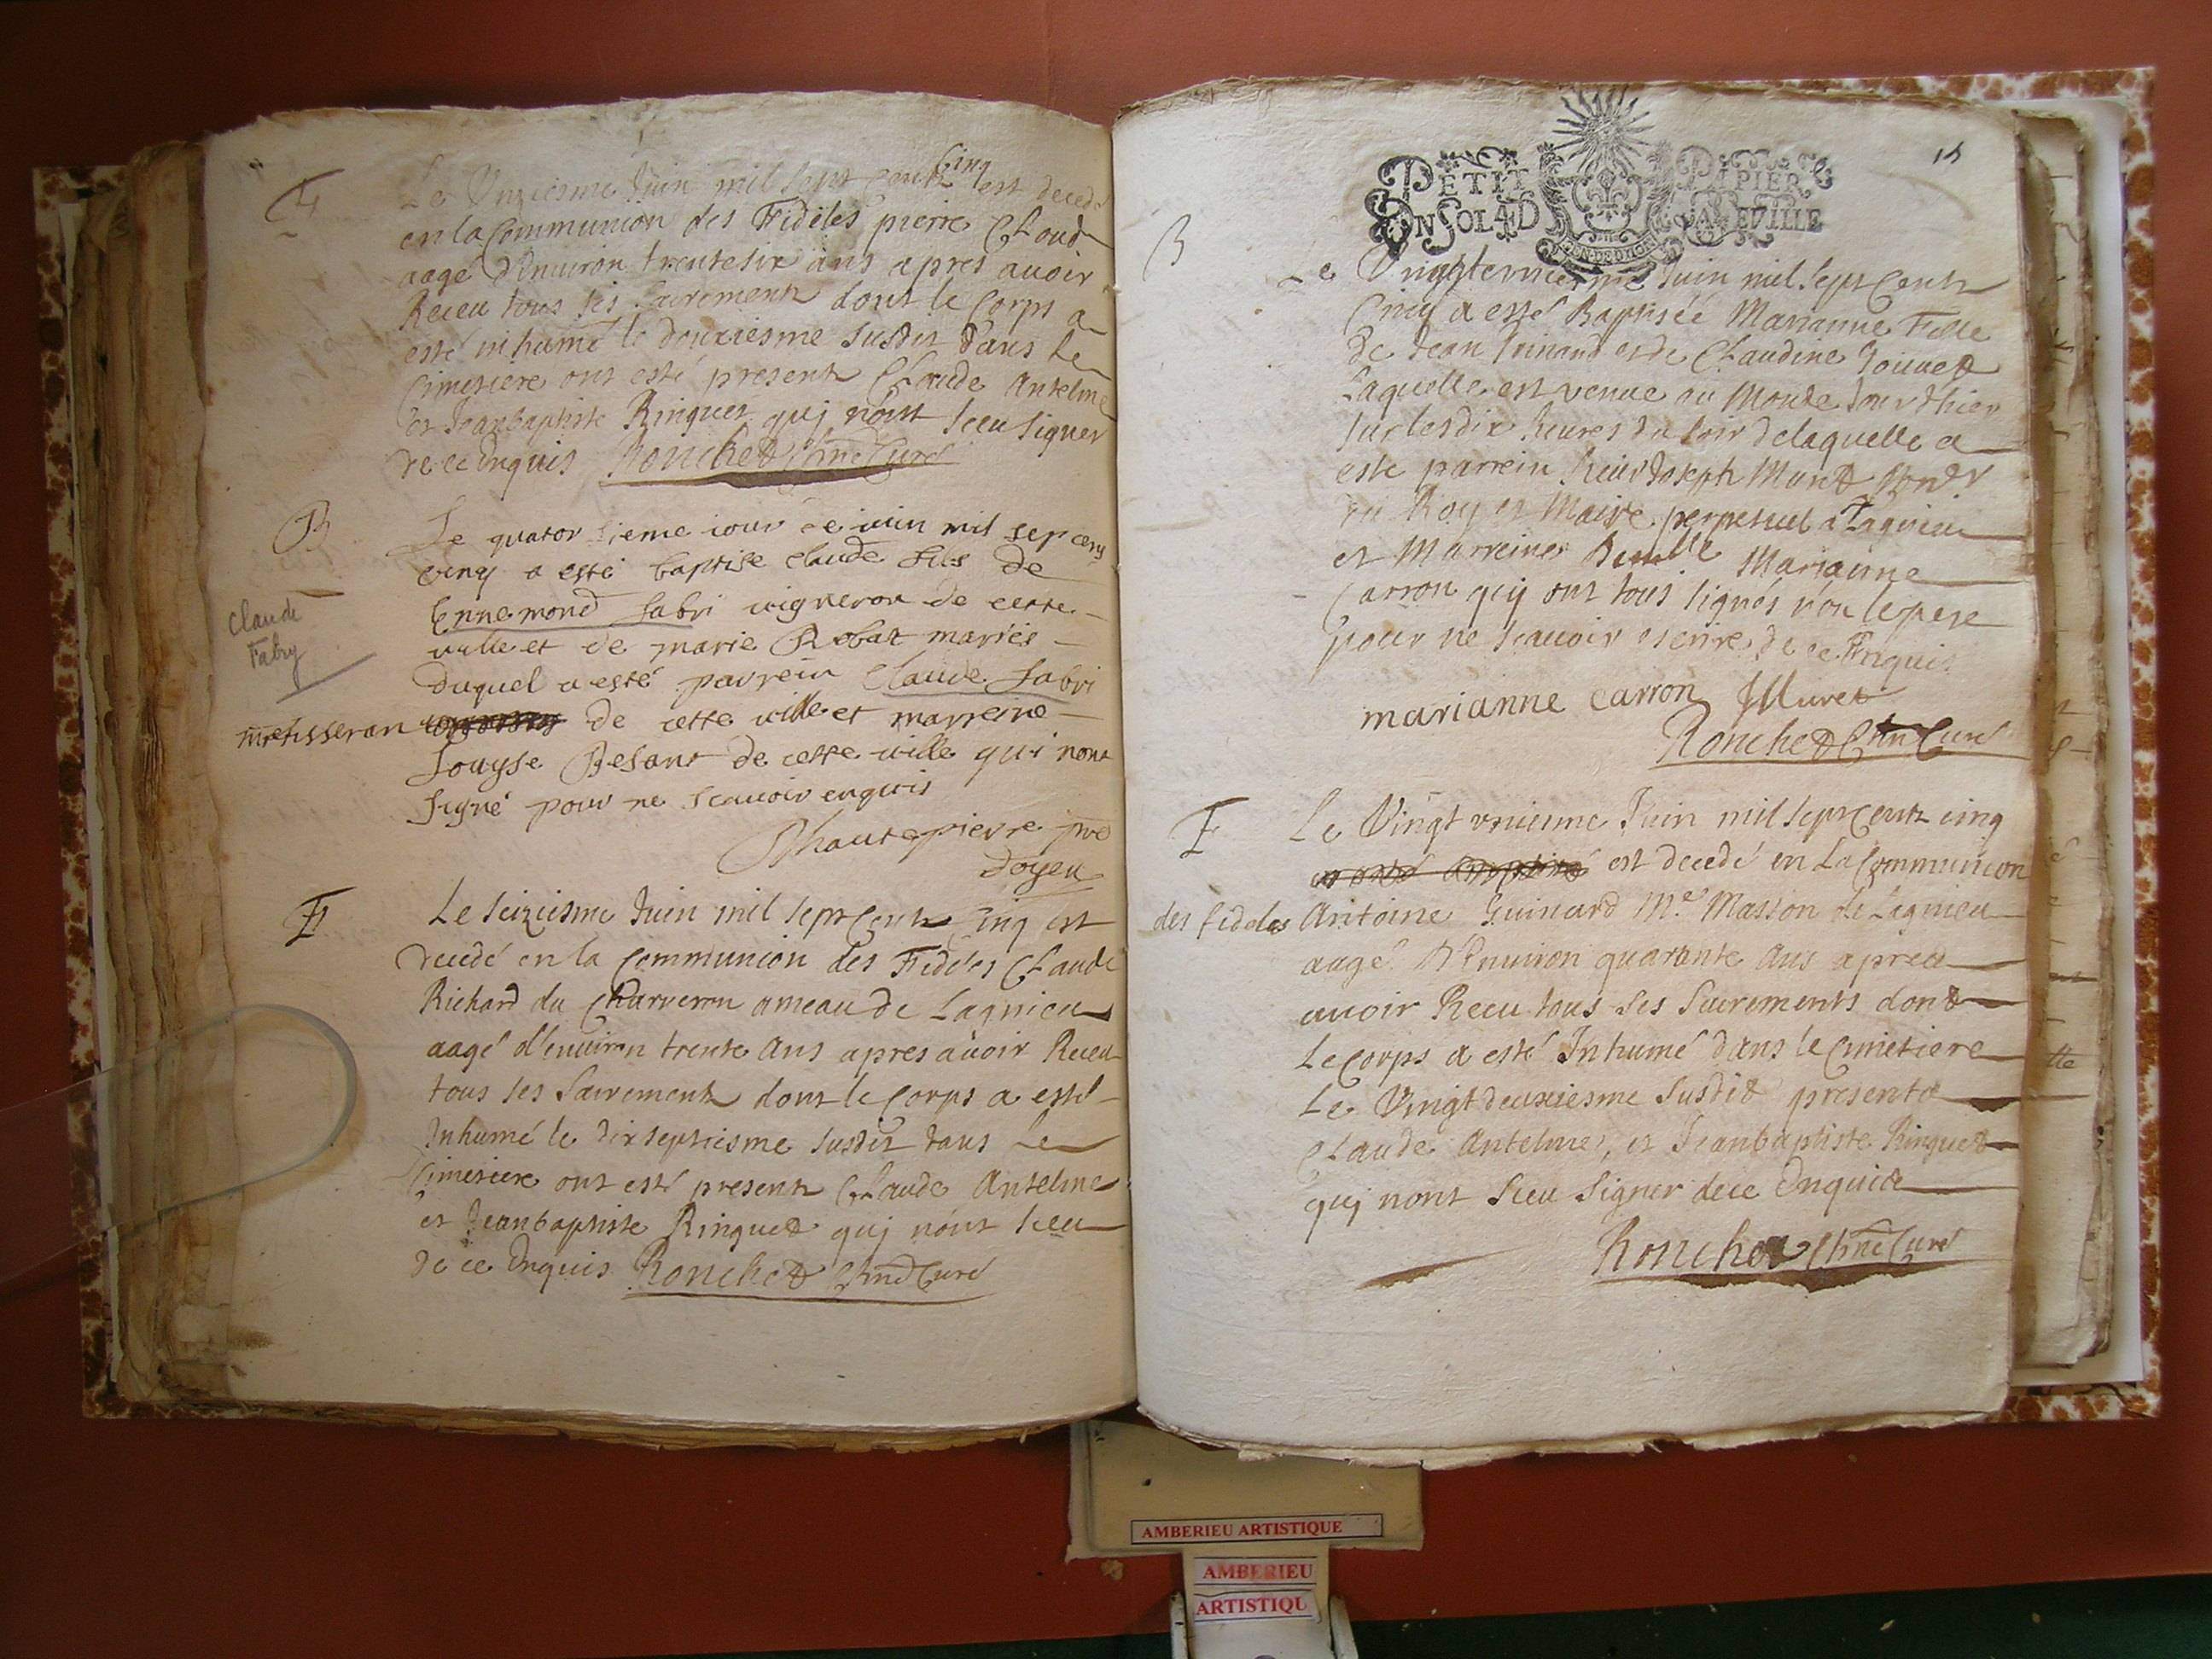 Le Unziesme Juin mil sept Centz Cinq est decedé
en la Communion des Fideles pierre Cloud
aagé d'Enuiron trentesix ans apres auoir
Receu tous ses Sacrementz dont le Corps a
esté inhumé le douziesme susdit dans le
Cimetiere ont esté presentz Claude Antelme
et Jeanbaptiste Ringuet quj n'ont sceu signer
de ce Enquis Ronchet Chne Curé
B
Le quator sieme iour de iuin mil sept cens
cinq a esté baptise claude fils de
Ennemond fabri uigneron de cette
uille et de marie Robat mariés
Claude
Fabry
duquel a esté parrein Claude fabri
me tisseran de cette uille et marreine
Louyse Besant de cette uille qui nont
signé pour ne scauoir enquis
Dhautepierre pre
doyen
F
Le seiziesme Juin mil sept Centz Cinq est
decedé en la Communion des Fideles Claude
Richard du Charueron ameau de Lagnieu
aagé d'enuiron trente Ans apres auoir Receu
tous ses Sacrementz dont le Corps a esté
Inhumé le dixseptiesme susdit dans le
Cimetiere ont esté presentz Claude Antelme
et Jeanbaptiste Ringuet quj n'ont sceu
de ce Enquis Ronchet Chne Curé
15
PETIT PAPIER
UN SOL 4 D LA FEUILLE
GEN DE DIJON
B
Le Juin mil sept Centz
Cinq a esté Baptiséé Marianne Fille
de Jean et de Claudine Jouuet
Laquelle est venue au Monde Jour d'hier
sur les dix heures du soir de laquelle a
esté parrein Sieur Joseph Muret
du Roy et Maire perpetuel a Lagnieu
et Marreine Marianne
Carron quj ont tous signés non le pere
pour ne scauoir escrire de ce Enquis
marianne carron JMuret
Ronchet Chne Curé
F
Le Vingt vniemme Juin mil sept Centz cinq
est decedé en La Communion
des fideles Antoine Guinard Me Masson de Lagnieu
aagé d'Enuiron quarante Ans apred
auoir Receu tous ses Sacrements dont
Le Corps a esté Inhumé dans le Cimetiere
Le Vingtdeuxiesme Susdit presentz
Claude Antelme, et Jeanbaptiste Ringuet
quj nont Sceu Signer de ce Enquis
Ronchet Chne Curé
AMBERIEU ARTISTIQUE
AMBERIEU
ARTISTIQU